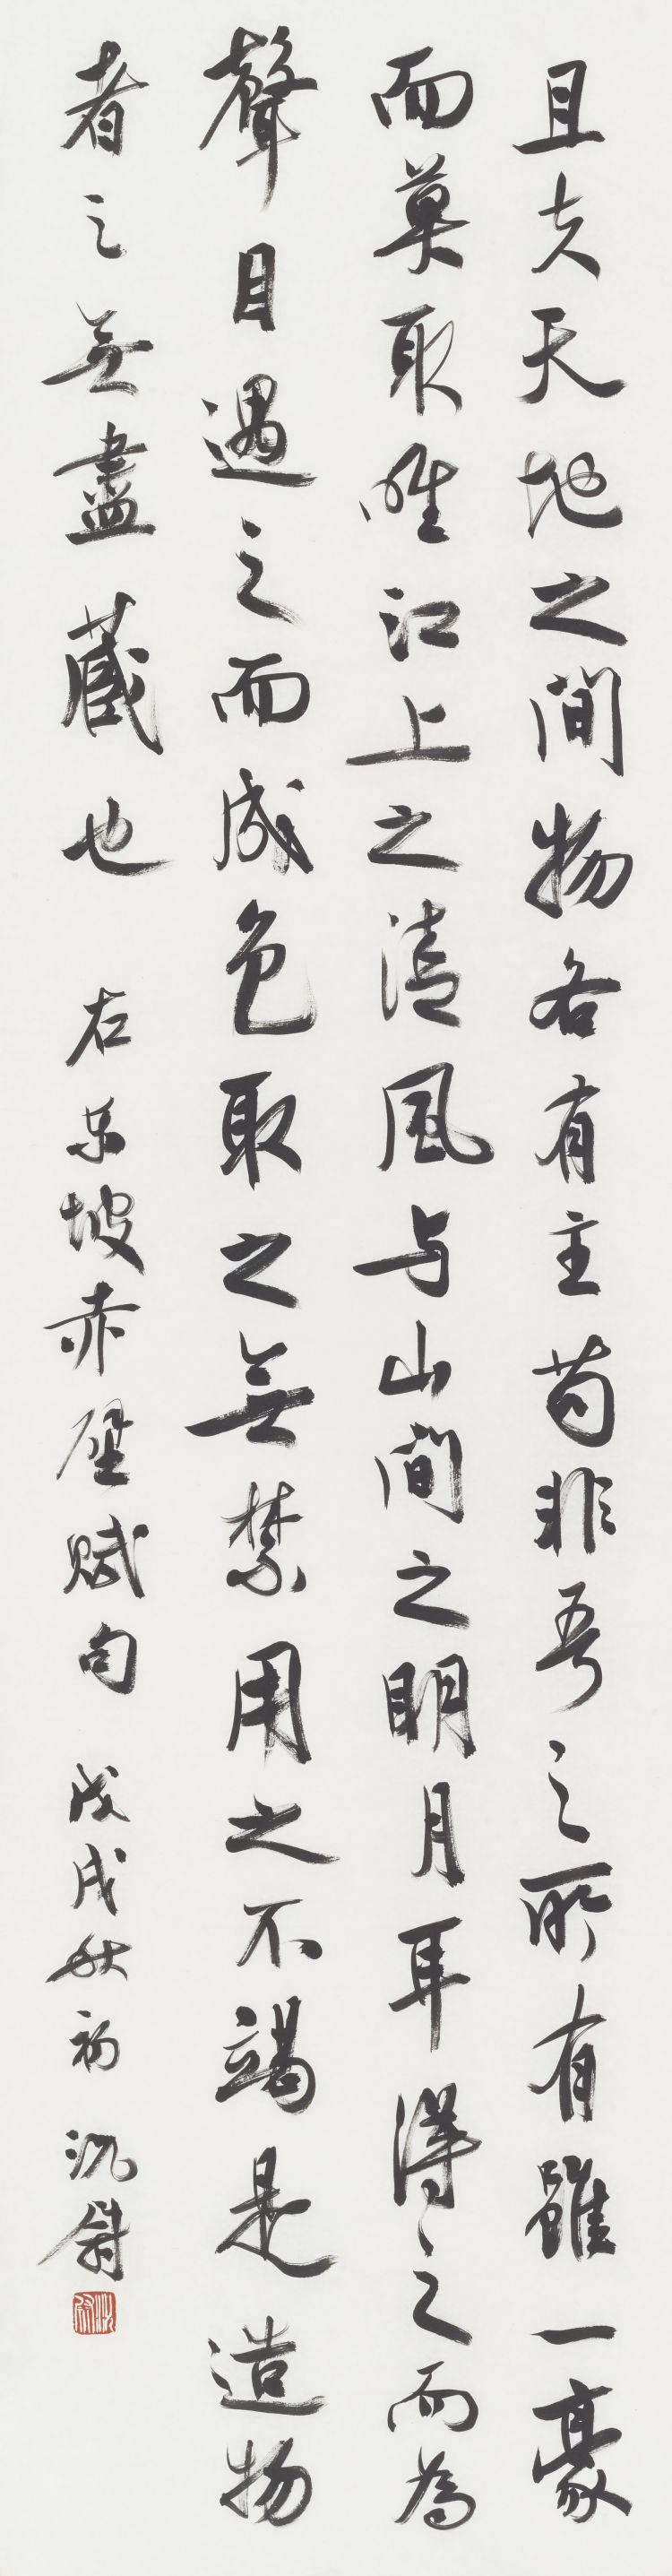 且夫天地之間物各有主苟非吾之所有雖一豪
而莫取唯江上之清風与山間之明月耳得之而為
聲目遇之而成色取之無禁用之不竭是造物
者之無盡藏也 右东坡赤壁賦句 戊戌秋初 沈